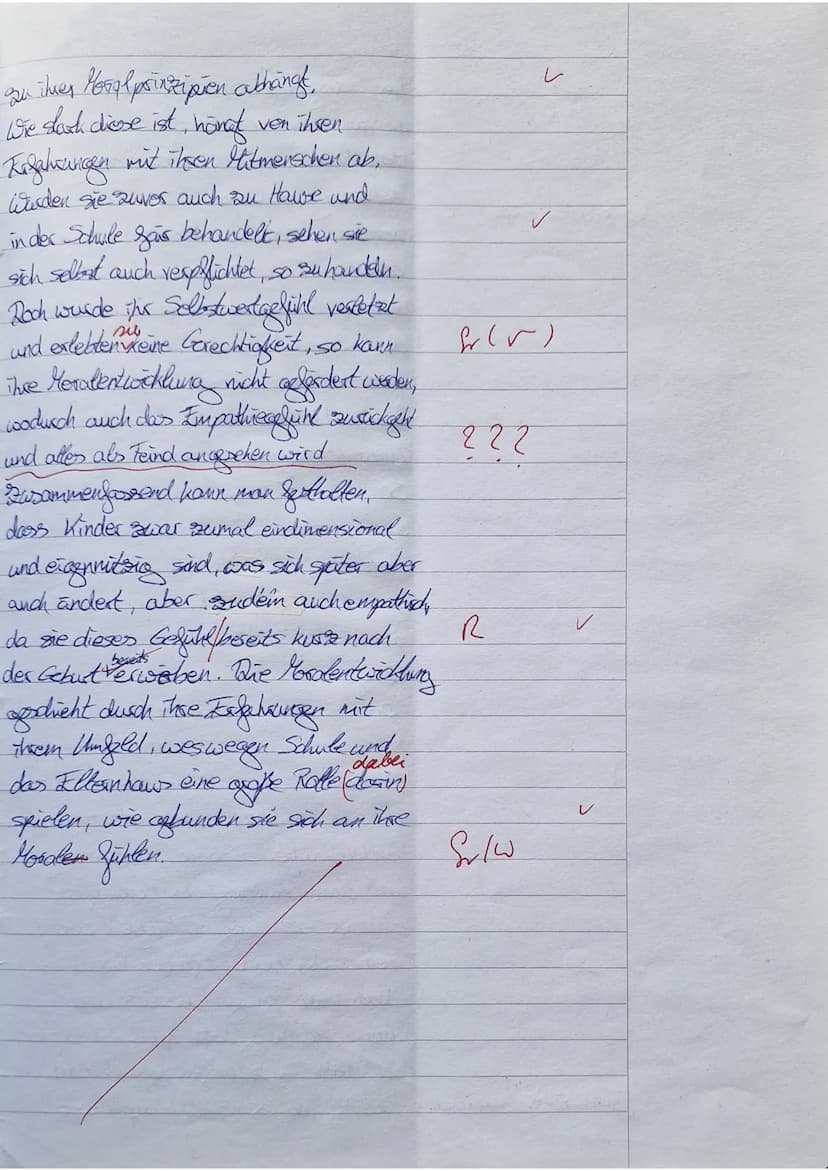 zu ihren Moralprinzipien abhängt. ✓
Wie stark diese ist, hängt von ihren
Erfahrungen mit ihren Mitmenschen ab.
Wurden sie zuvor auch zu Hause und
in der Schule fair behandelt, sehen sie ✓
sich selbst auch verpflichtet, so zu handeln.
Doch wurde ihr Selbstwertgefühl verletzt
sie
und erlebten keine Gerechtigkeit, so kann Gr (√)
ihre Moralentwicklung nicht gefördert werden,
wodurch auch das Empathiegefühl zurückgeht
und alles als Feind angesehen wird ???
Zusammenfassend kann man festhalten,
dass Kinder zwar zumal eindimensional
und eigennützig sind, was sich später aber
auch ändert, aber zudem auch empathisch,
da sie dieses Gefühl bereits kurz nach R ✓
bereits
der Geburt erwerben. Die Moralentwicklung
geschieht durch ihre Erfahrungen mit
ihrem Umfeld, weswegen Schule und
dabei
das Elternhaus eine große Rolle (darin)
spielen, wie gebunden sie sich an ihre ✓
Moralen fühlen. Gr/W